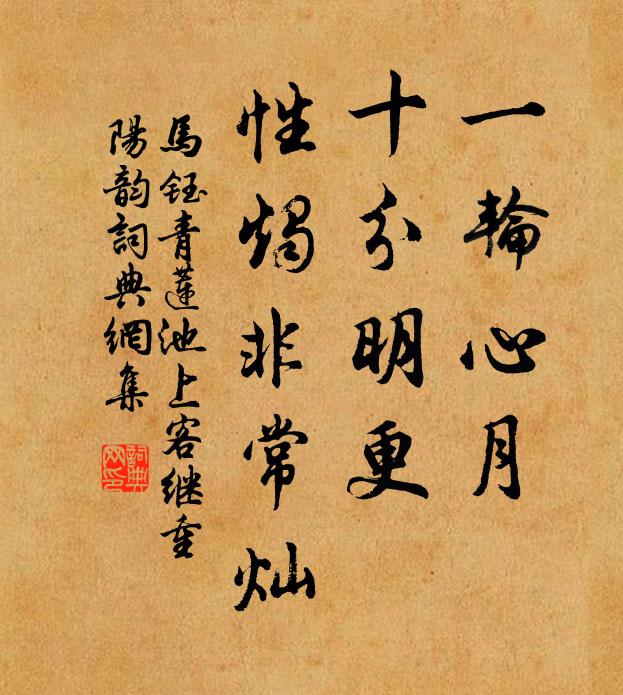 一輪心月
十分明更
性燭非常灿
馬鈺青蓮池上客继重
陽韵詞典網集
詞典網印